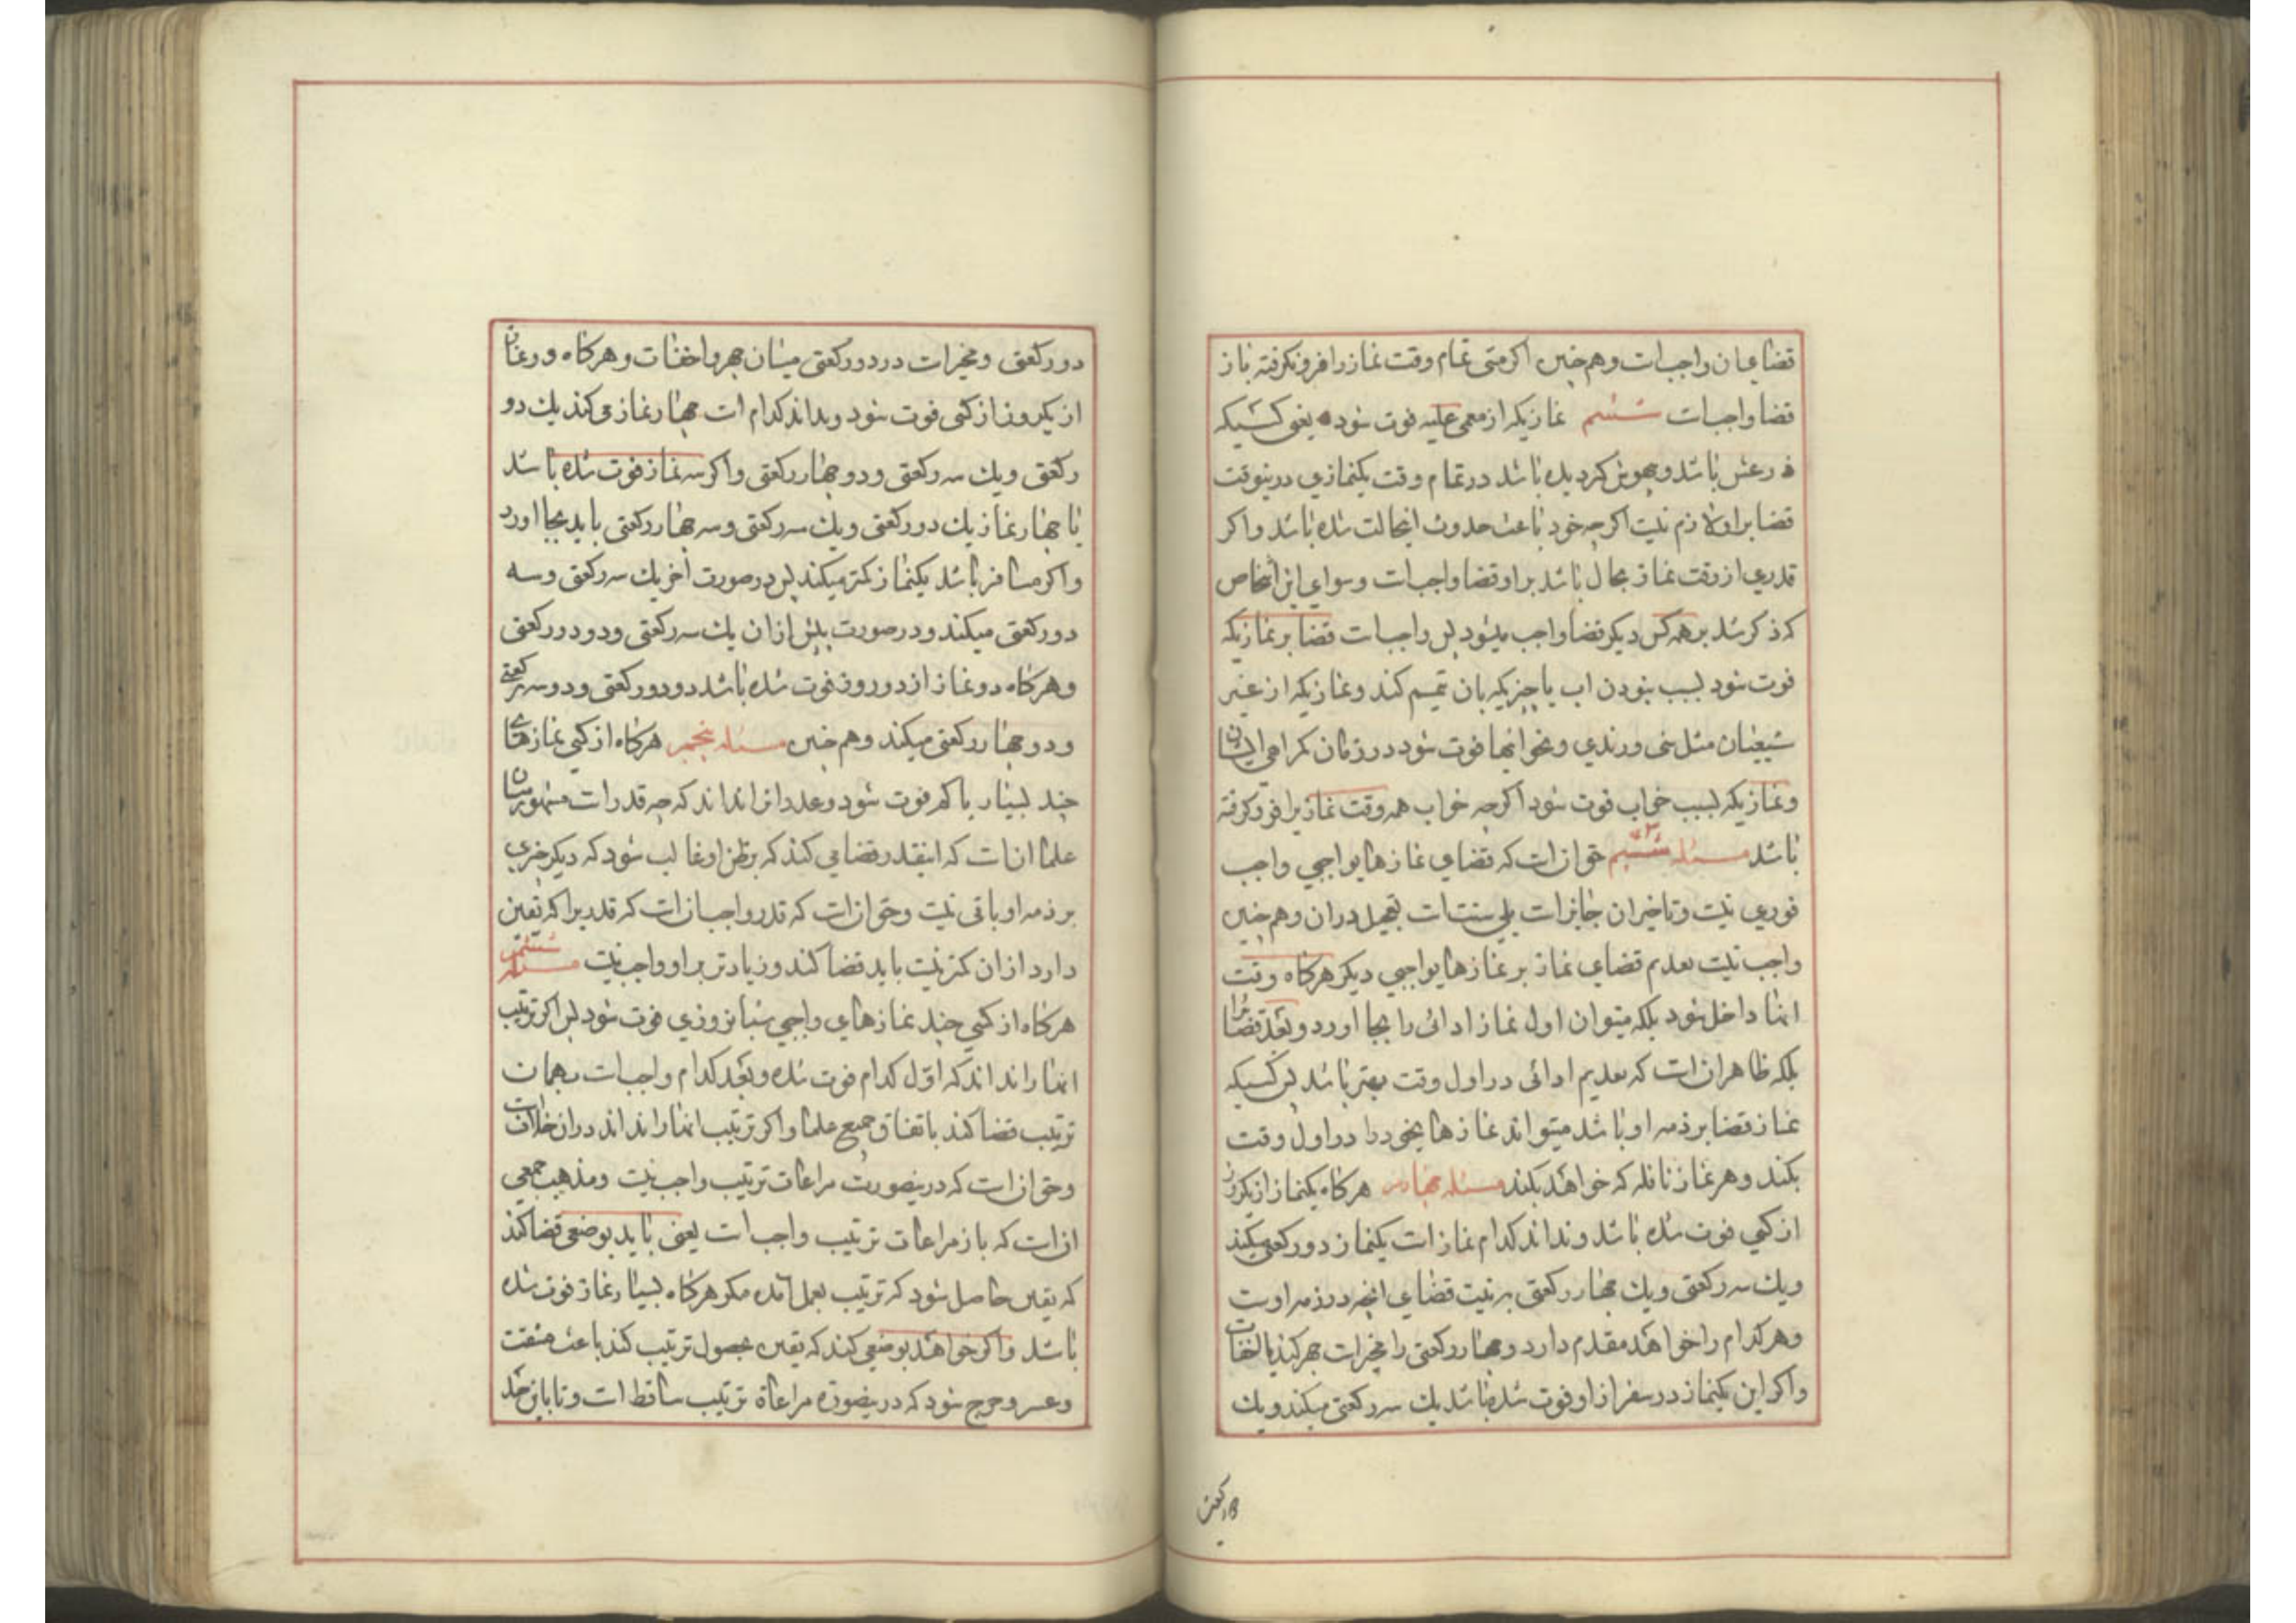 قضای ان واجبست و هم چنین اکر مستی تمام وقت نماز را فرو نکرفته باز
قضا واجبست ششم نمازیکه از مغمی علیه فوت شود یعنی کسیکه
در غش باشد و بیهوش کردیده باشد در تمام وقت یکنمازی درینوقت
قضا بر او لازم نیست اکرچه خود باعث حدوث اینحالت شده باشد و اکر
قدری از وقت نماز بحال باشد بر او قضا واجبست و سوای این اشخاص
که ذکر شد بر همه کس دیکر قضا واجب میشود پس واجبست قضا بر نمازیکه
فوت شود بسبب نبودن اب یا چیزیکه بان تیمم کند و نمازیکه از غیر
شیعیان مثل سنی و زیدی و نحو اینها فوت شود در زمان کمراهی ایشان
و نمازیکه بسبب خواب فوت شود اکرچه خواب همه وقت نماز را فرو کرفته
باشد مسئله سیم حق ان است که قضای نمازهای واجبی واجب
فوری نیست و تاخیر ان جایز است بلی سنت است تعجیل در ان و هم چنین
واجب نیست تقدیم قضای نماز بر نمازهای واجبی دیکر هرکاه وقت
انها داخل شود بلکه میتوان اول نماز ادائی را بجا اورد و بعد قضا را
بلکه ظاهر ان است که تقدیم ادائی در اول وقت بهتر باشد پس کسیکه
نماز قضا بر ذمه او باشد میتواند نمازهای خود را در اول وقت
بکند و هر نماز نافله که خواهد بکند مسئله چهارم هرکاه یکنماز از یکروز
از کسی فوت شده باشد و نداند کدام نماز است یکنماز دو رکعتی میکند
و یک سه رکعتی و یک چهار رکعتی به نیت قضای انچه در ذمه اوست
و هر کدام را خواهد مقدم دارد و چهار رکعتی را مخیر است جهر کند یا اخفات
و اکر این یکنماز در سفر از او فوت شده باشد یک سه رکعتی میکند و یک
دو رکعتی و مخیر است در دو رکعتی میان جهر و اخفات و هرکاه دو نماز
از یکروز از کسی فوت شود و نداند کدام است چهار نماز می کند یک دو
رکعتی و یک سه رکعتی و دو چهار رکعتی و اکر سه نماز فوت شده باشد
با چهار نماز یک دو رکعتی و یک سه رکعتی و سه چهار رکعتی باید بجا اورد
و اکر مسافر باشد یکنماز کمتر میکند پس در صورت اخر یک سه رکعتی و سه
دو رکعتی میکند و در صورت پیش از ان یک سه رکعتی و دو دو رکعتی
و هرکاه دو نماز از دو روز فوت شده باشد دو دو رکعتی و دو سه رکعتی
و دو چهار رکعتی میکند و هم چنین مسئله پنجم هرکاه از کسی نمازهای
چند بسیار یا کم فوت شود و عدد انرا نداند که چه قدر است مشهور میان
علما ان است که اینقدر قضا می کند که بر ظن او غالب شود که دیکر چیزی
بر ذمه او باقی نیست و حق ان است که قدر واجب ان است که قدریرا که یقین
دارد از ان کمتر نیست باید قضا کند و زیادتر بر او واجب نیست مسئله ششم
هرکاه از کسی چند نمازهای واجبی شبانروزی فوت شود پس اکر ترتیب
انها را نداند که اول کدام فوت شده و بعد کدام واجبست بهمان
ترتیب قضا کند باتفاق جمیع علما و اکر ترتیب انها را نداند در ان خلاف است
و حق ان است که درینصورت مراعات ترتیب واجب نیست و مذهب جمعی
ان است که باز مراعات ترتیب واجب است یعنی باید بوضعی قضا کند
که یقین حاصل شود که ترتیب بعمل امده مکر هرکاه بسیار نماز فوت شده
باشد و اکر خواهد بوضعی کند که یقین بحصول ترتیب کند باعث مشقت
و عسر و حرج شود که درینصورة مراعاة ترتیب ساقط است و تا باین حد
دو رکعتی